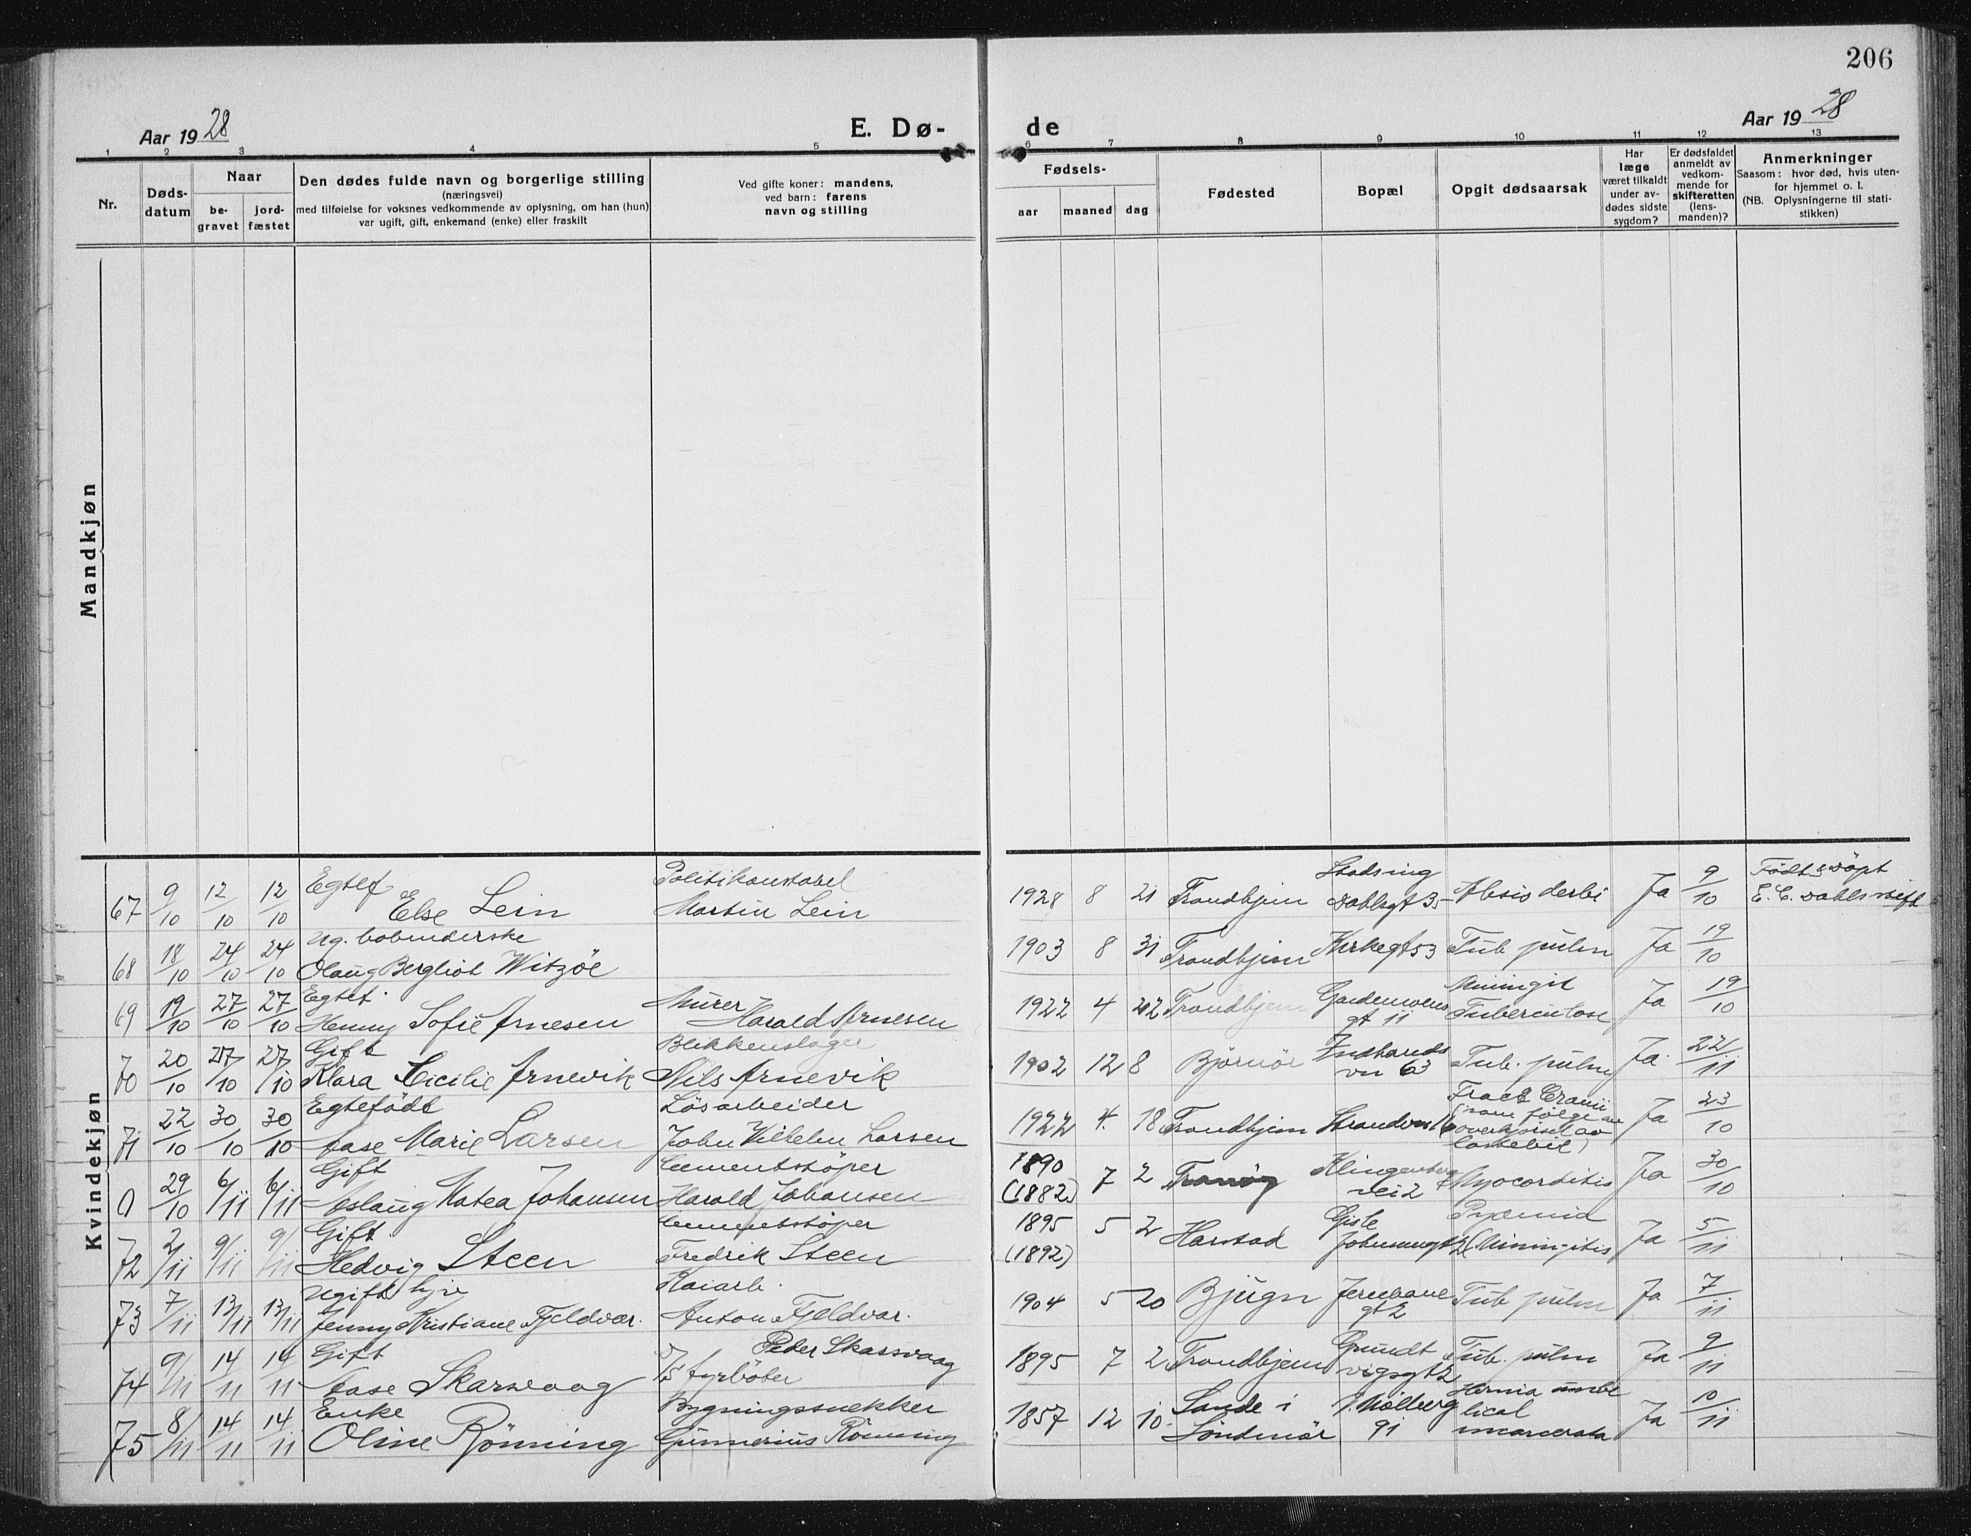 206
Aar 1928
E. Dø-
de
Aar 1928
1 2 3 4 5 6 7 8 9 10 11 12 13
Nr.
Døds-
datum
Naar
be-
gravet
jord-
fæstet
Den dødes fulde navn og borgerlige stilling
(næringsvei)
med tilføielse for voksnes vedkommende av oplysning, om han (hun)
var ugift, gift, enkemand (enke) eller fraskilt
Ved gifte koner: mandens,
ved barn: farens
navn og stilling
Fødsels-
aar maaned dag
Fødested
Bopæl
Opgit dødsaarsak
Har
læge
været tilkaldt
under av-
dødes sidste
sygdom?
Er dødsfaldet
anmeldt av
vedkom-
mende for
skifteretten
(lens-
manden)?
Anmerkninger
Saasom: hvor død, hvis uten-
for hjemmet o. l.
(NB. Oplysningerne til stati-
stikken)
Mandkjøn
Kvindekjøn
Egtef Politikonstabel Stadsing Født & døpt
67 9/10 12/10 12/10 Else Lein Martin Lein 1928 8 21 Trondhjem Dahlsgt 35 Ja 9/10 E. C. Dahls stift
Ug.
68 18/10 24/10 24/10 Olaug Bergliot Witzøe 1903 8 31 Trondhjem Kirkegt 53 Tub. pulm Ja 19/10
Egtef. Murer
69 19/10 27/10 27/10 Henny Sofie Arnesen Harald Arnesen 1922 4 22 Trondhjem gt 11 Tuberculose Ja 19/10
Gift Blikkenslager
70 20/10 27/10 27/10 Klara Cecilie Arnevik Nils Arnevik 1902 12 8 Bjørnør 63 Tub. pulm Ja 22/11
Egtefødt Løsarbeider Fract Cranii
71 22/10 30/10 30/10 Aase Marie Larsen John Vilhelm Larsen 1922 4. 18 Trondhjem (som følge av overkjørsel av lastebil) Ja 23/10
Gift Cementstøper 1890
0 29/10 6/11 6/11 Aslaug Katea Johansen Harald Johansen (1882) 7 2 Tranøy Klingenberg vei 2 Myocarditis Ja 30/10
Gift Cementstøper 1895 Gisle Pyæmia
72 2/11 9/11 9/11 Hedvig Steen Fredrik Steen (1892) 5 2 Harstad Ja 5/11
Ugift Kaiarb.
73 7/11 13/11 13/11 Jenny Kristiane Fjeldvær. Anton Fjeldvær. 1904 5 20 Bjugn gt 2 Tub. pulm Ja 7/11
Gift Peder Skarsvaag
74 9/11 14/11 14/11 Aase Skarsvaag fyrbøter 1895 7 2 Trondhjem Grundtvigsgt 2 Tub. pulm Ja 9/11
Enke Bygningssnekker Sande i Møllenberg Hernia umbilical
75 8/11 14/11 14/11 Oline Rønning Gunnerius Rønning 1857 12 10 Søndmør 91 incarcerata Ja 10/11